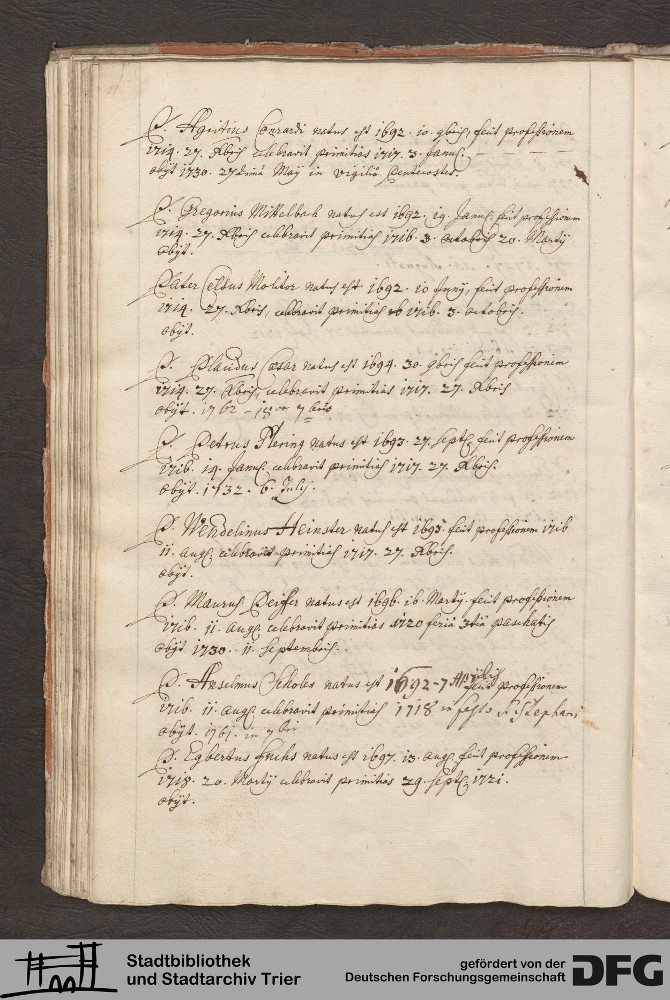 P. Agritius Conrardi natus est 1692. 10. 9bris, fecit professionem
1714. 27. Xbris celebravit primitias 1717. 3. Januar.
obÿt 1730. 27 Maÿ in vigilia Pentecostes.
P. Gregorius Mittelbach natus est 1692. 19. Januar. fecit professionem
1714. 27. Xbris celebravit primitias 1716. 3. octobris 20. Martÿ
obÿt.
Pater Celsus Molitor natus est 1692. 10 Junÿ, fecit professionem
1714. 27. Xbris, celebravit primitias 1716. 3. octobris.
obÿt.
P. Claudius Cæsar natus est 1694. 30. 9bris fecit professionem
1714. 27. Xbris, celebravit primitias 1717. 27. Xbris
obÿt. 1762 - 18va 7bris
P. Petrus Flering natus est 1693. 27. Sept. fecit professionem
1716. 14. Januar. celebravit primitias 1717. 27. Xbris.
obÿt. 1732. 6. Julÿ.
P. Wendelinus Heinster natus est 1693. fecit professionem 1716
11. aug. celebravit primitias 1717. 27. Xbris.
obÿt.
P. Maurus Peiffer natus est 1696. 16. Martÿ. fecit professionem
1716. 11. aug. celebravit primitias 1720 feria 3tia paschatis
obÿt 1730. 11. Septembris.
P. Anselmus Scholer natus est 1692 - 7 Aprilis fecit professionem
1716. 11. aug. celebravit primitias 1718 in festo S. Stephani
obÿt. 1761. in 7bri
P. Egbertus Fuchs natus est 1697. 13. aug. fecit professionem
1718. 20. Martÿ celebravit primitias 29. Sept. 1721.
obÿt.
Stadtbibliothek
und Stadtarchiv Trier
gefördert von der
Deutschen Forschungsgemeinschaft
DFG